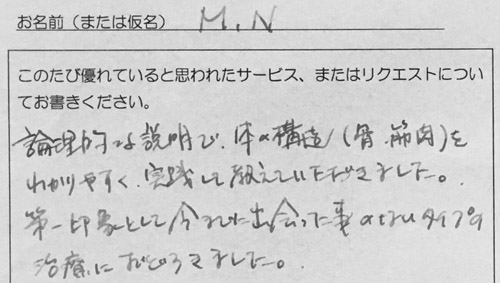 お名前（または仮名） M.N
このたび優れていると思われたサービス、またはリクエストについ
てお書きください。
論理的な説明で、体の構造（骨、筋肉）を
わかりやすく、実践して教えていただきました。
第一印象として今までに出会った事のないタイプの
治療におどろきました。